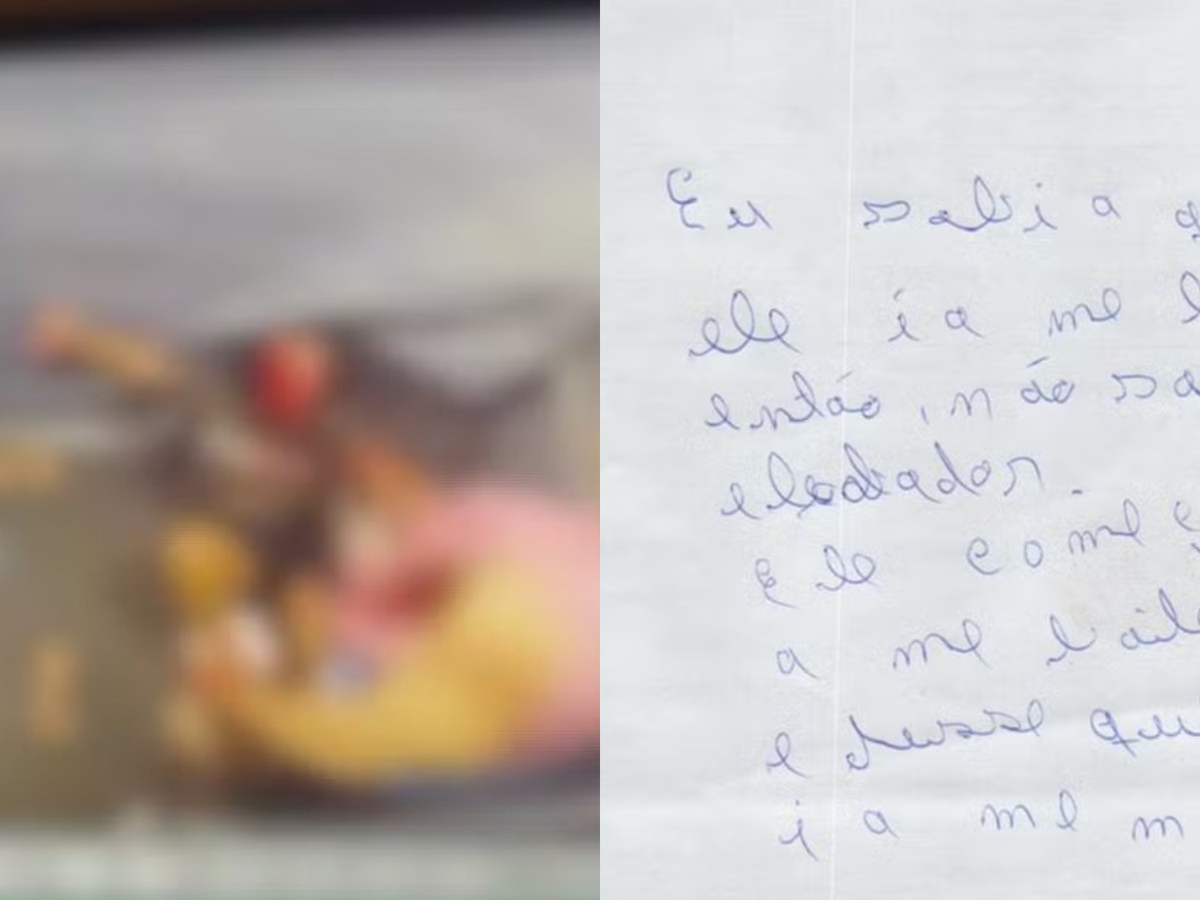 Eu sabia q
ele ia me
então, não sa
elevador.
Ele come
a me
e disse qu
ia me m